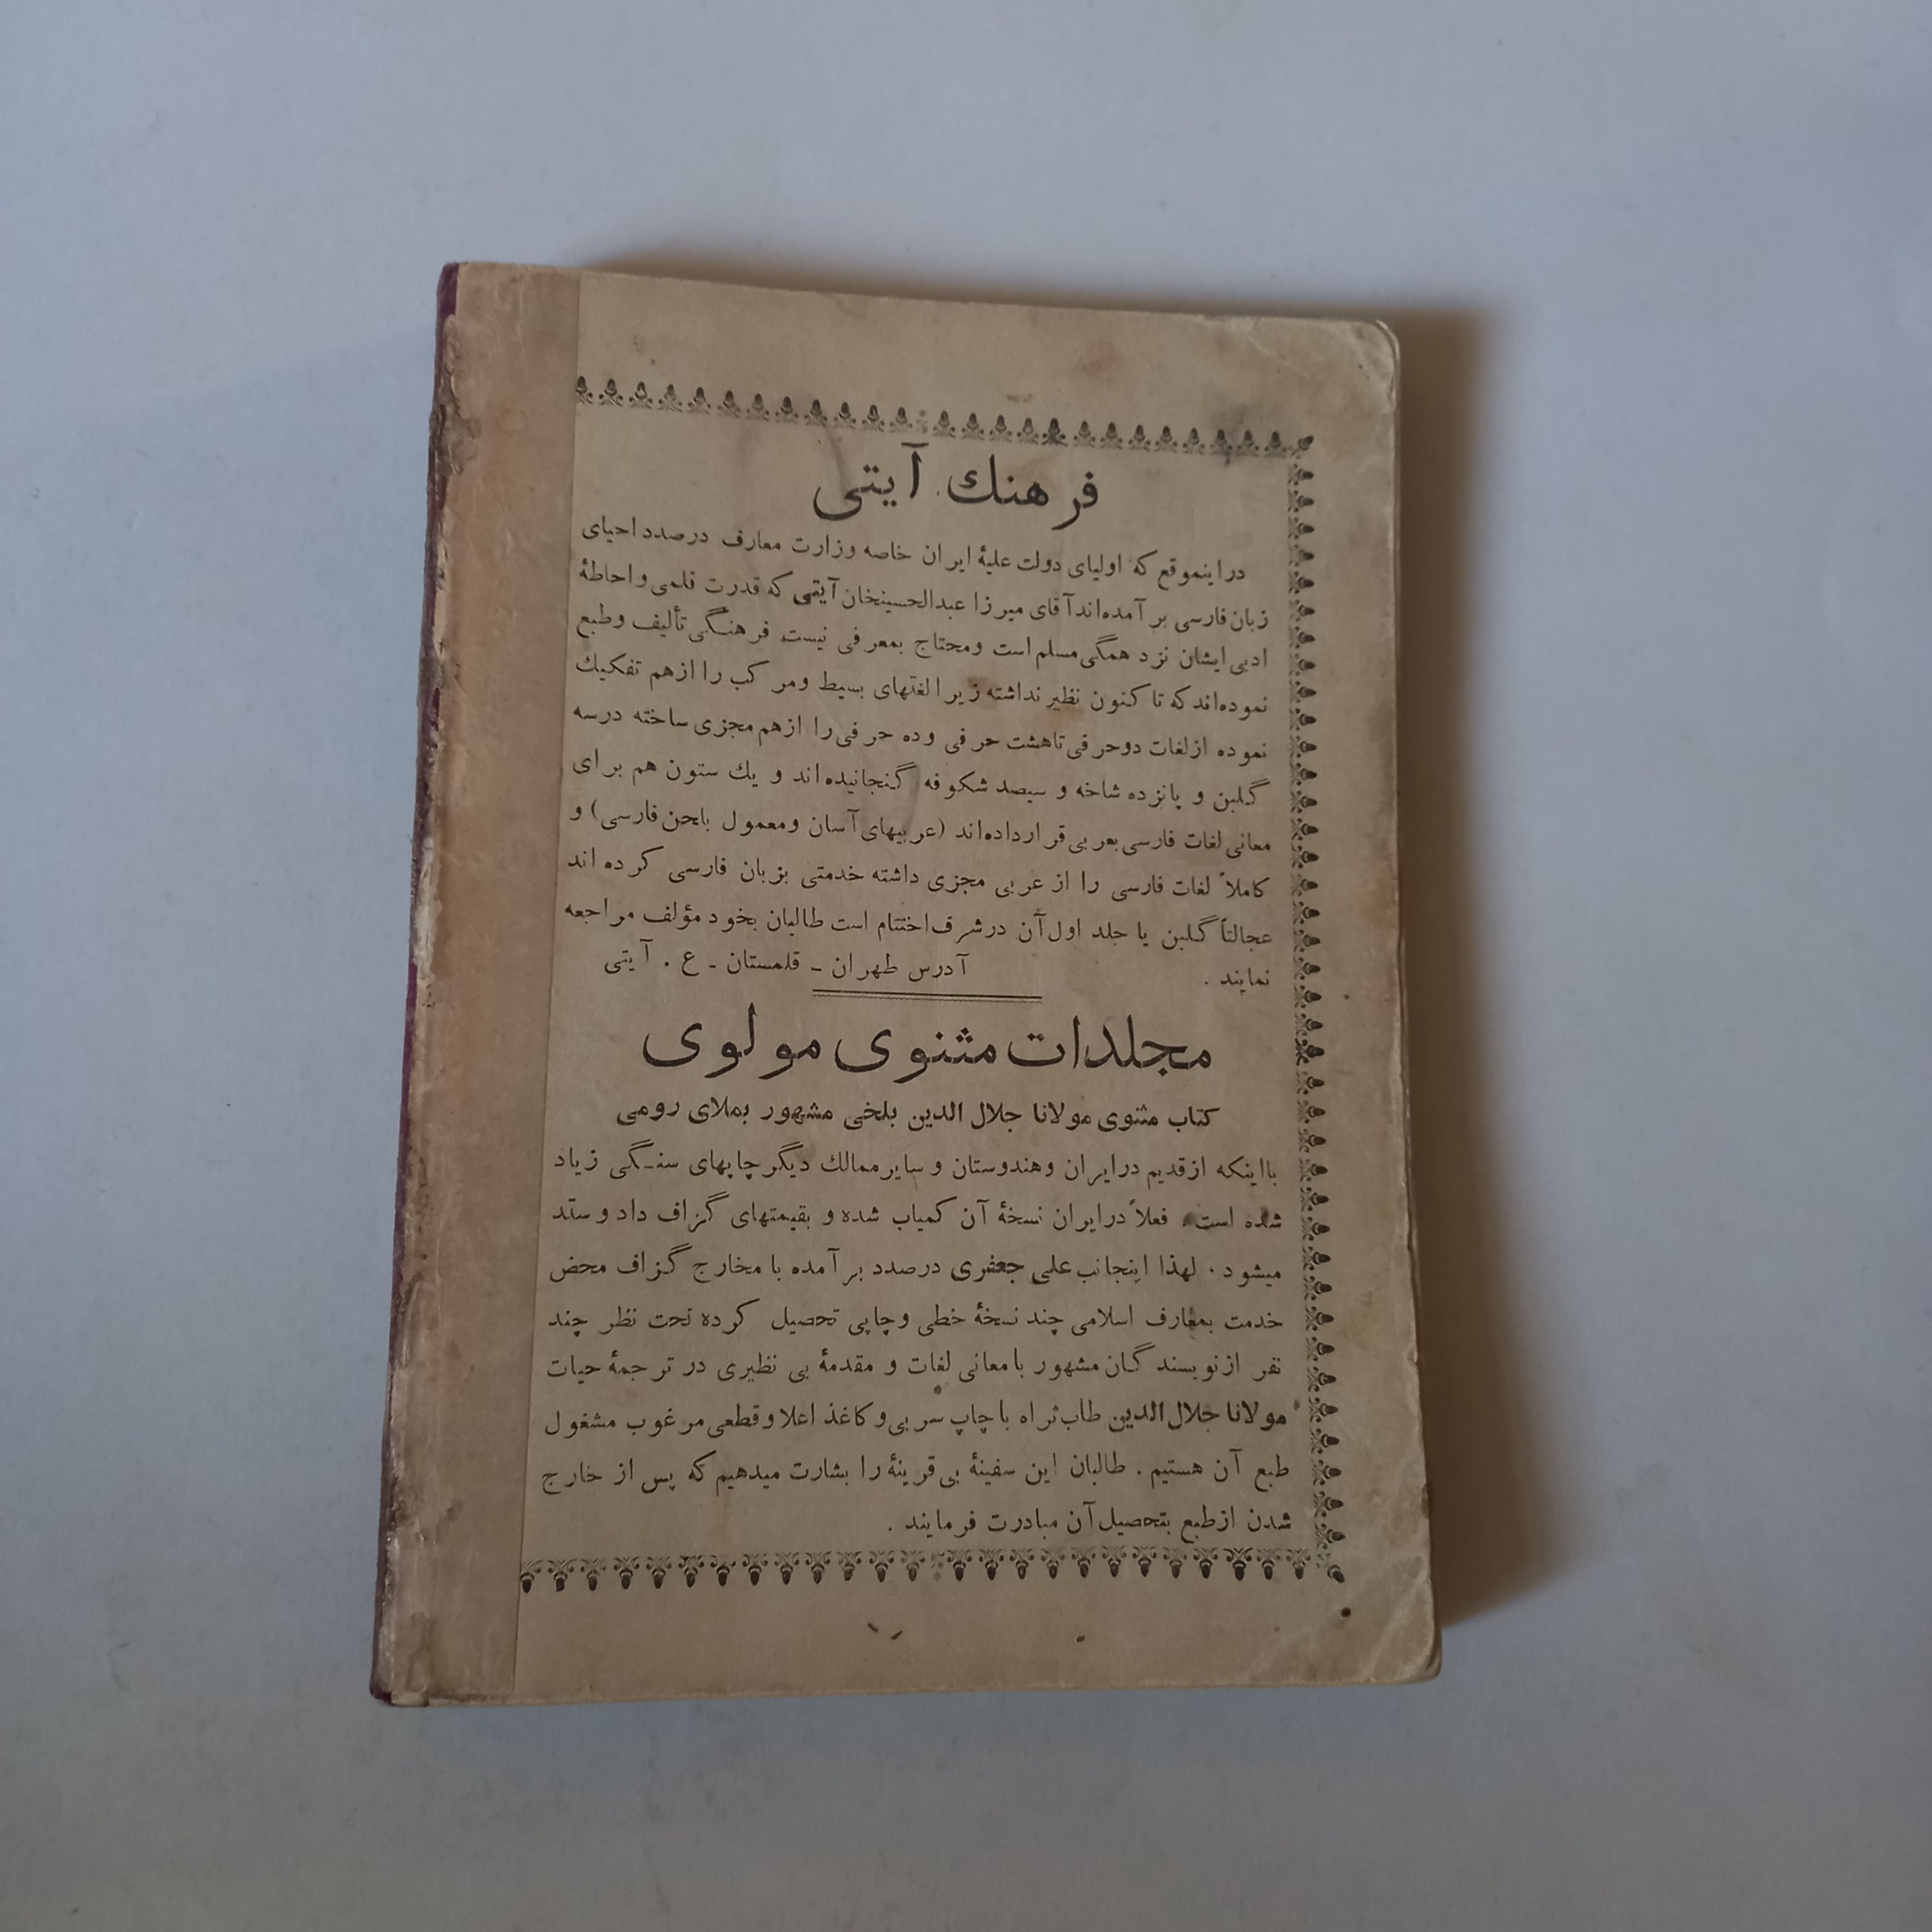 فرهنك آیتی
دراینموقع که اولیای دولت علیهٔ ایران خاصه وزارت معارف درصدد احیای
زبان فارسی بر آمده‌اند آقای میرزا عبدالحسینخان آیتی که قدرت قلمی و احاطهٔ
ادبی ایشان نزد همگی مسلم است ومحتاج بمعرفی نیست فرهنگی تألیف وطبع
نموده‌اند که تا کنون نظیر نداشته زیرا لغتهای بسیط ومرکب را ازهم تفکیك
نموده ازلغات دوحرفی تاهشت حرفی وده حرفی را ازهم مجزی ساخته درسه
گلبن و پانزده شاخه و سیصد شکوفه گنجانیده‌اند و یك ستون هم برای
معانی لغات فارسی بعربی قرارداده‌اند (عربیهای آسان ومعمول بلحن فارسی) و
کاملاً لغات فارسی را از عربی مجزی داشته خدمتی بزبان فارسی کرده اند
عجالتاً گلبن یا جلد اول آن درشرف اختتام است طالبان بخود مؤلف مراجعه
نمایند . آدرس طهران ـ قلمستان ـ ع . آیتی
مجلدات مثنوی مولوی
کتاب مثنوی مولانا جلال الدین بلخی مشهور بملای رومی
بااینکه ازقدیم درایران وهندوستان و سایرممالك دیگر چاپهای سنگی زیاد
شده است، فعلاً درایران نسخهٔ آن کمیاب شده و بقیمتهای گزاف داد و ستد
میشود . لهذا اینجانب علی جعفری درصدد بر آمده با مخارج گزاف محض
خدمت بمعارف اسلامی چند نسخهٔ خطی وچاپی تحصیل کرده تحت نظر چند
نفر ازنویسندگان مشهور بامعانی لغات و مقدمهٔ بی نظیری در ترجمهٔ حیات
مولانا جلال الدین طاب ثراه باچاپ سربی وکاغذ اعلا وقطعی مرغوب مشغول
طبع آن هستیم . طالبان این سفینهٔ بی قرینهٔ را بشارت میدهیم که پس از خارج
شدن ازطبع بتحصیل آن مبادرت فرمایند .